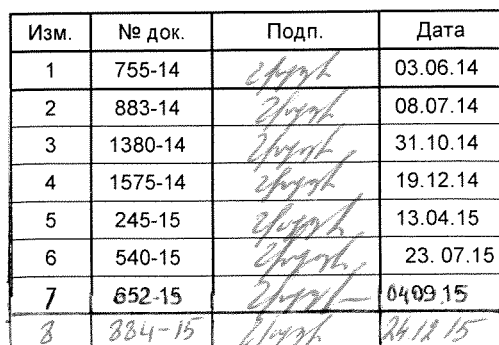 Изм. № док. Подп. Дата
1 755-14 03.06.14
2 883-14 08.07.14
3 1380-14 31.10.14
4 1575-14 19.12.14
5 245-15 13.04.15
6 540-15 23. 07.15
7 652-15 0409.15
8 884-15 24 12 15